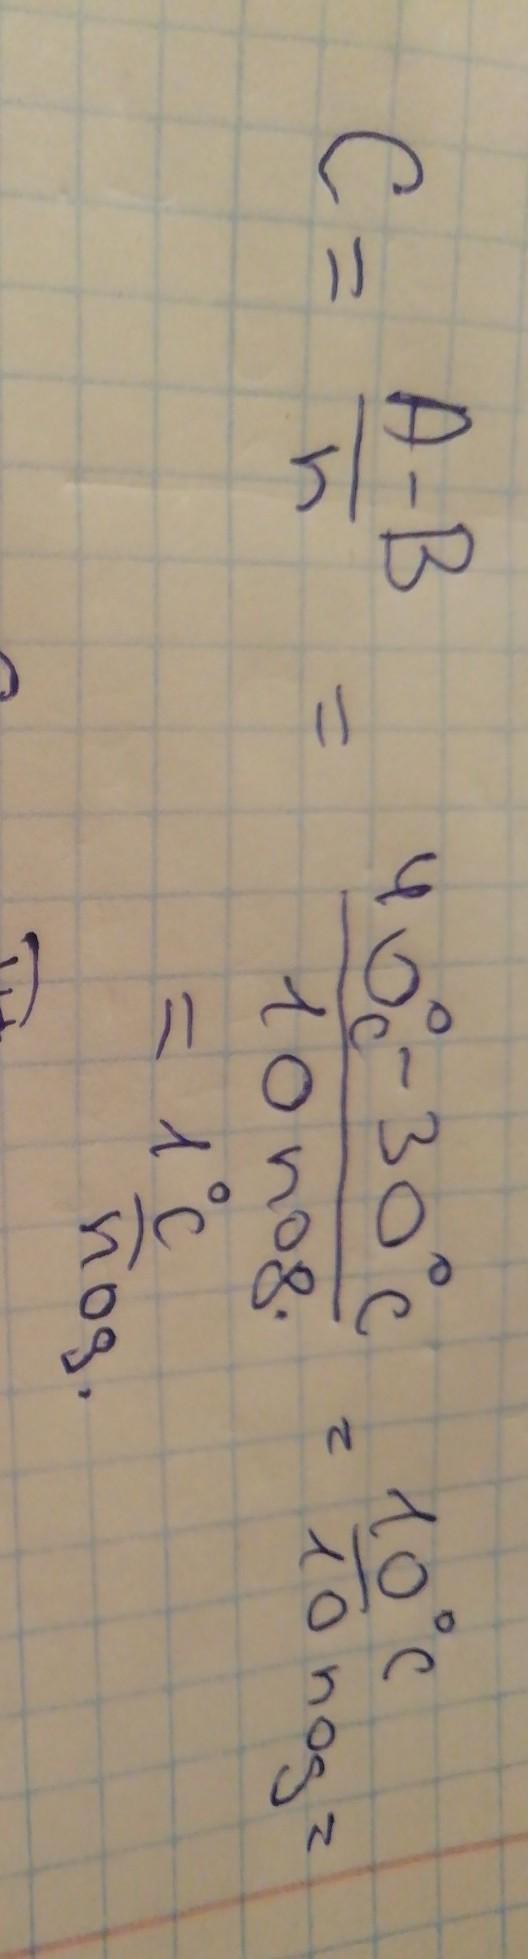 C = A - B / n = 40°C - 30°C / 10 под. = 10°C / 10 под =
= 1°C / под.